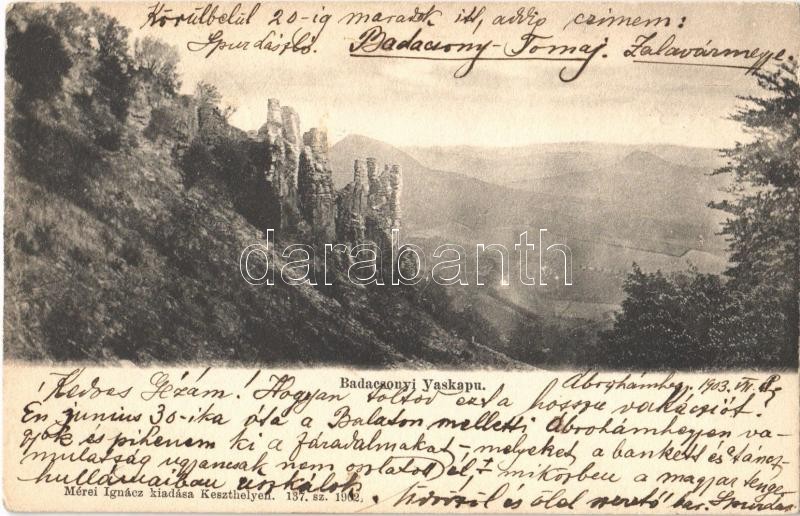 Körülbelül 20-ig maradok itt, addig czimem:
Spur László. Badacsony-Tomaj. Zalavármegye.
darabanth
Badacsonyi Vaskapu.
Ábrahámhegy, 1903. VII.
Kedves Gézám! Hogyan töltöd ezt a hosszu vakácziót.
Én junius 30-ika óta a Balaton melletti Ábrahámhegyen va-
gyok és pihenem ki a fáradalmakat, melyeket a bankett és táncz-
mulatság ugyancsak nem oszlatott el, mikörben a magyar tenge
hullámaiban uszkálok. Üdvözöl és ölel szerető
Mérei Ignácz kiadása Keszthelyen. 137. sz. 1902.